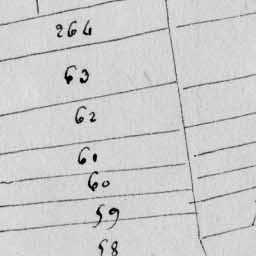 264
63
62
61
60
59
58